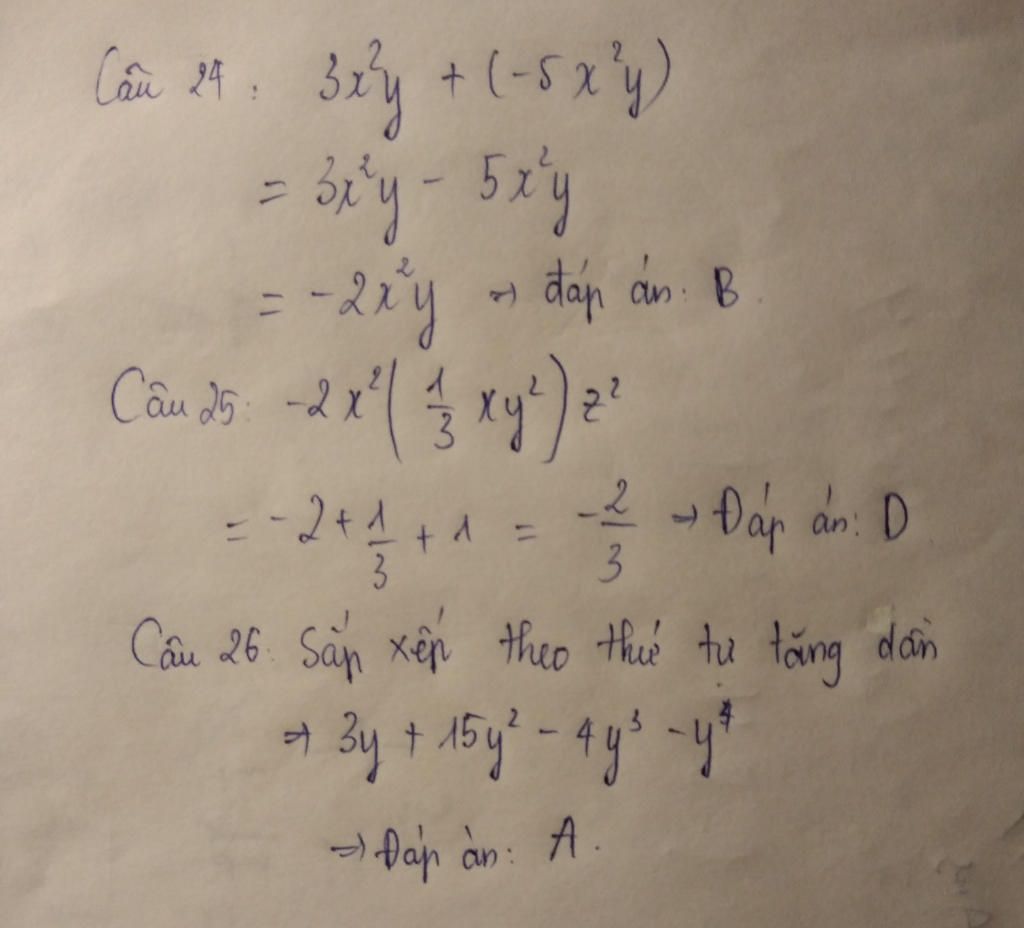 Câu 24: 3x²y + (-5x²y)
= 3x²y - 5x²y
= -2x²y → đáp án: B.
Câu 25: -2x²(1/3 xy²)z²
= -2 + 1/3 + 1 = -2/3 → Đáp án: D
Câu 26: Sắp xếp theo thứ tự tăng dần
⇒ 3y + 15y² - 4y³ - y⁴
⇒ Đáp àn: A.